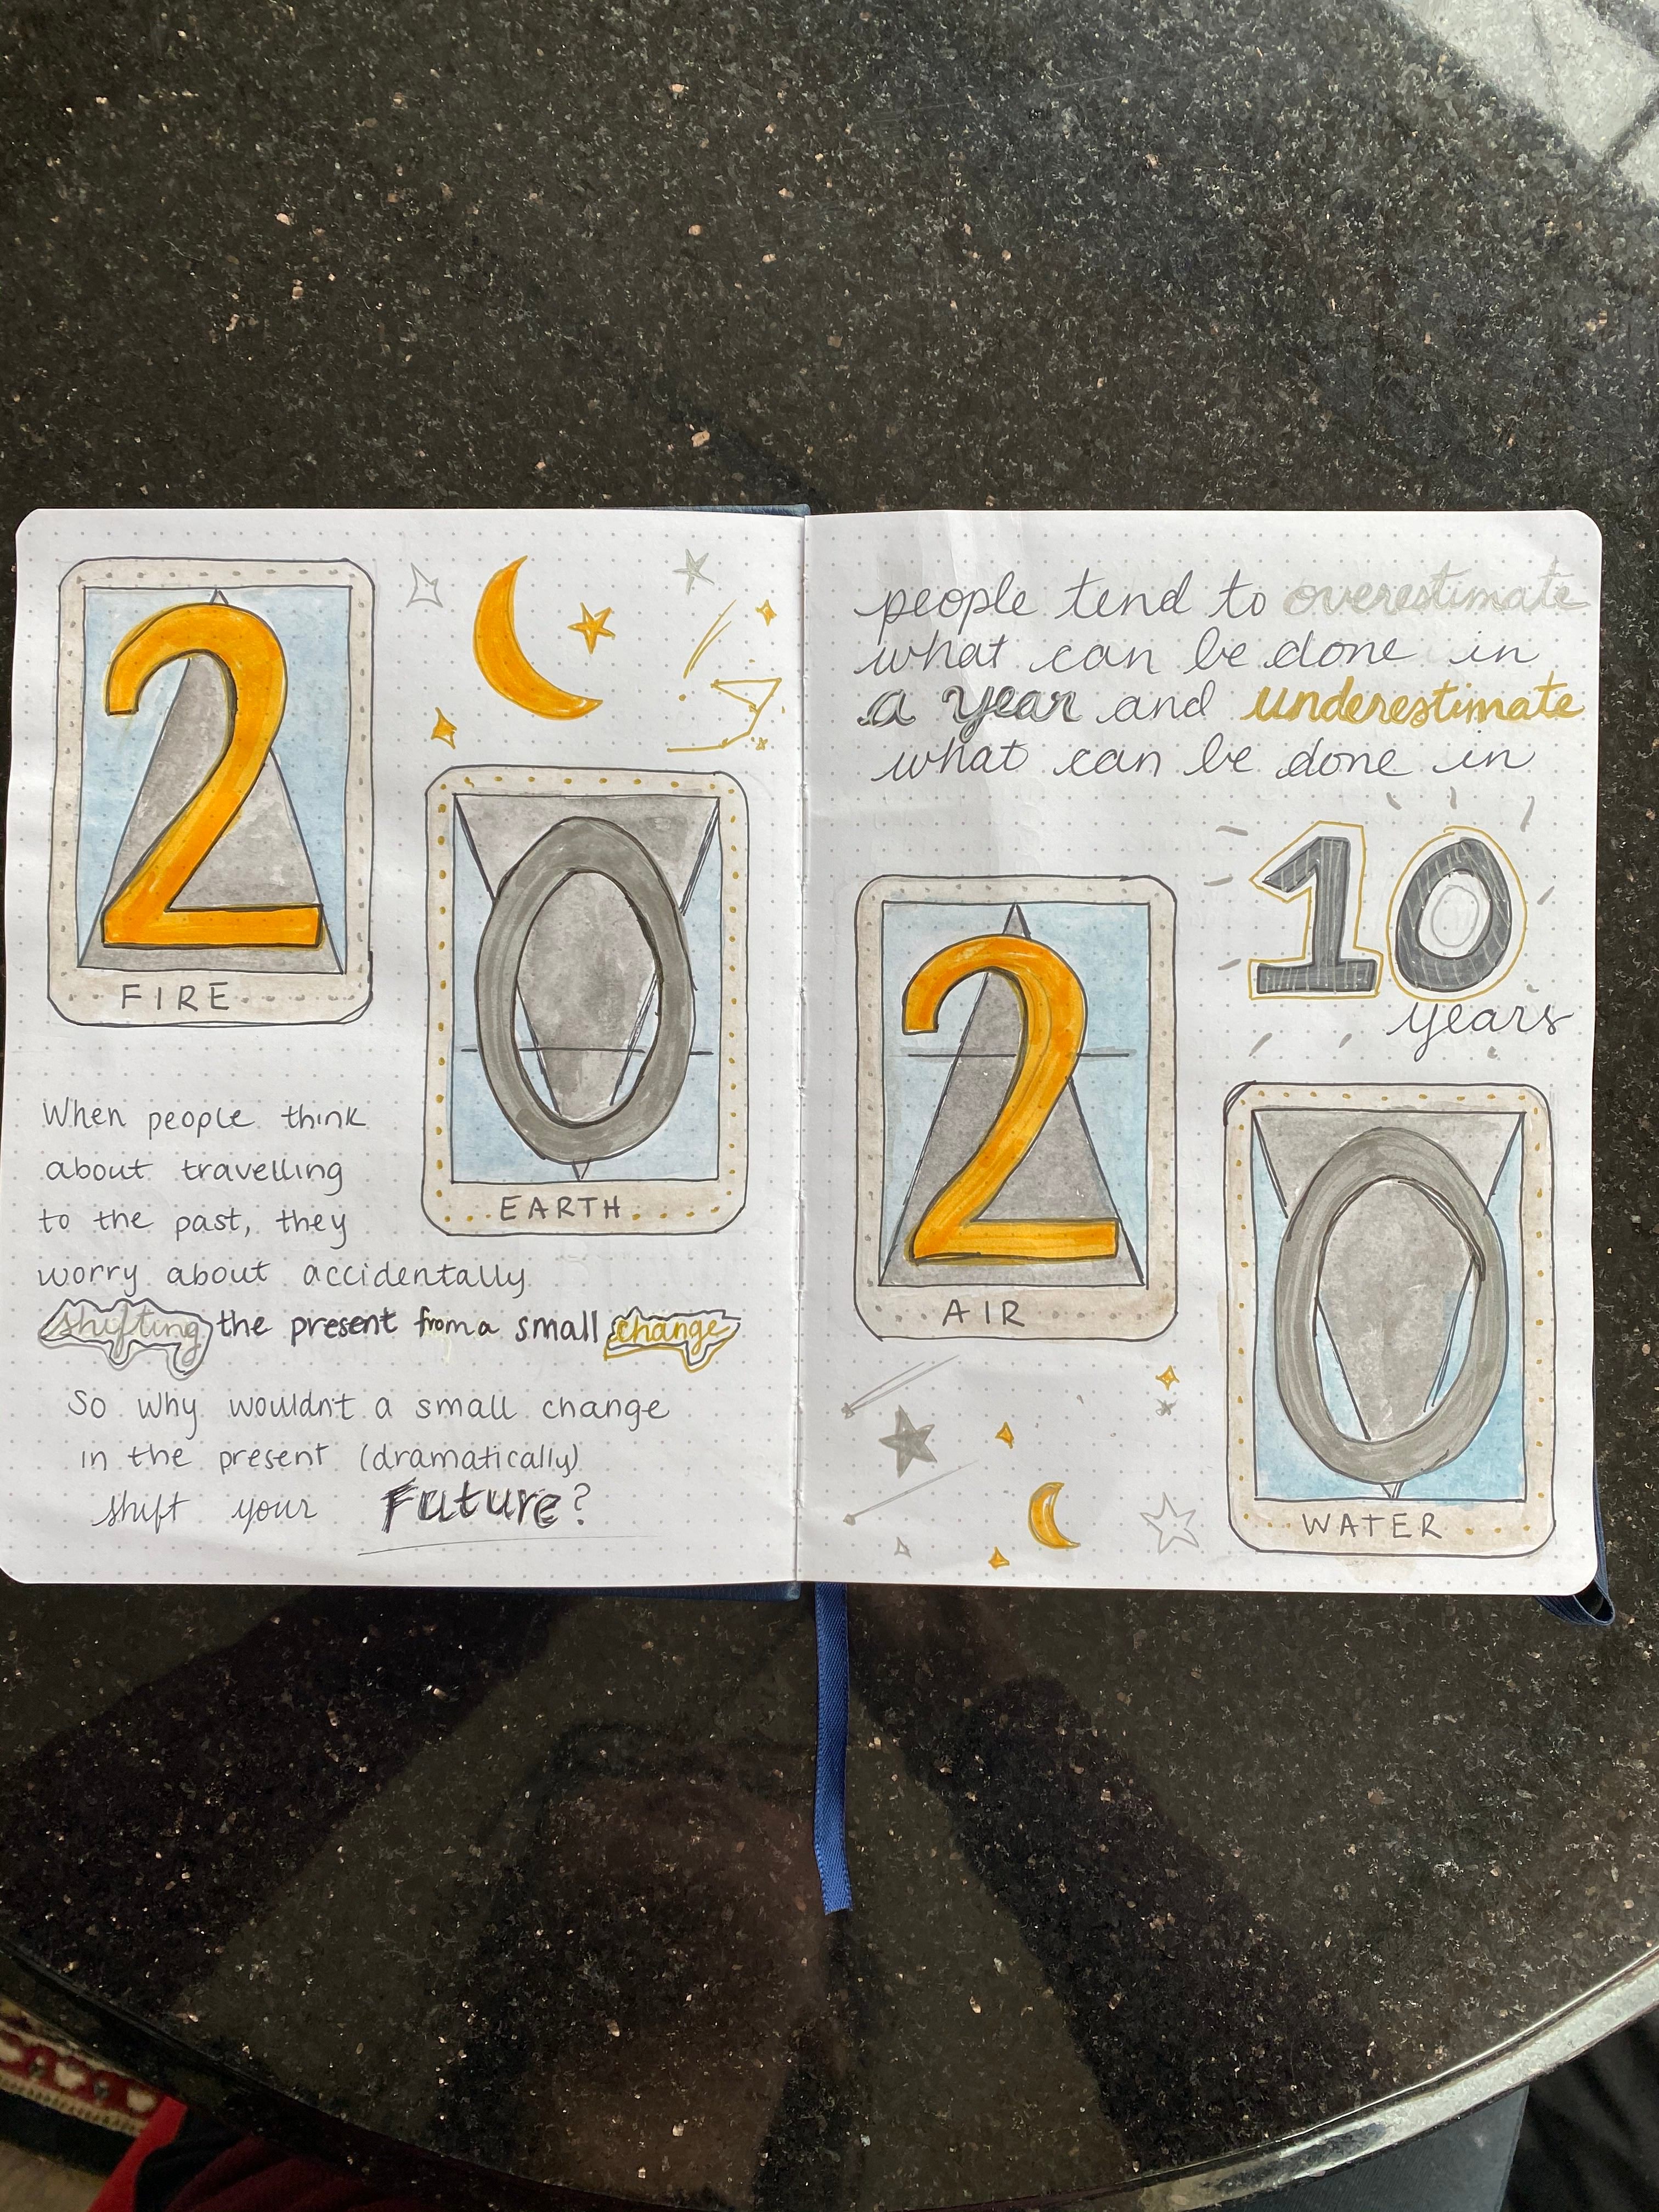 2
FIRE
0
EARTH
When people think
about travelling
to the past, they
worry about accidentally
shifting the present from a small change
So why wouldn't a small change
in the present (dramatically)
shift your Future?
people tend to overestimate
what can be done in
a year and underestimate
what can be done in
10
years
2
AIR
0
WATER